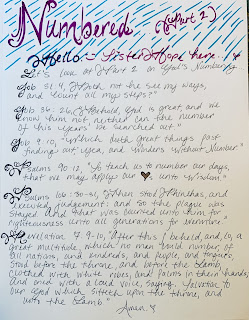 Numbered (Part 2)
Hello – Sister Hope here...
Let's look at Part 2 on God's Numbering
Job 31:4, "Doth not he see my ways,
and count all my steps?"
Job 36:26, "Behold, God is great, and we
know him not, neither can the number
of his years be searched out."
Job 9:10, "Which doeth great things past
finding out; yea, and wonders without number."
Psalms 90:12, "So teach us to number our days,
that we may apply our hearts unto wisdom."
Psalms 106:30-31, "Then stood Phinehas, and
executed judgement: and so the plague was
stayed. And that was counted unto him for
righteousness unto all generations for evermore."
Revelation 7:9-10, "After this I beheld, and, lo, a
great multitude, which no man could number, of
all nations, and kindreds, and people, and tongues,
stood before the throne, and before the Lamb,
clothed with white robes, and palms in their hands;
And cried with a loud voice, saying, Salvation to
our God which sitteth upon the throne, and
unto the Lamb."
Amen.